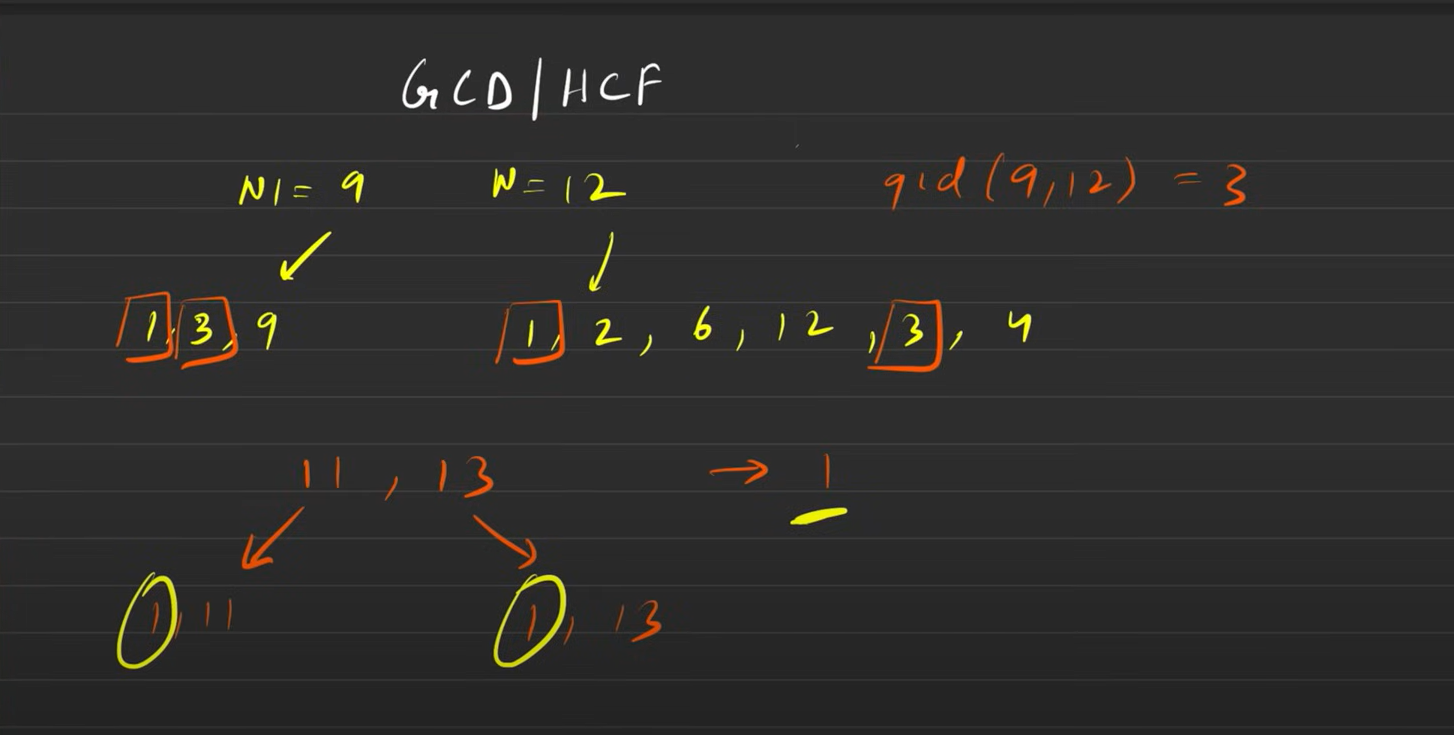 GCD/HCF
N1 = 9 N = 12 gcd (9,12) = 3
1, 3, 9 1, 2, 6, 12, 3, 4
11, 13 → 1
1, 11 1, 13